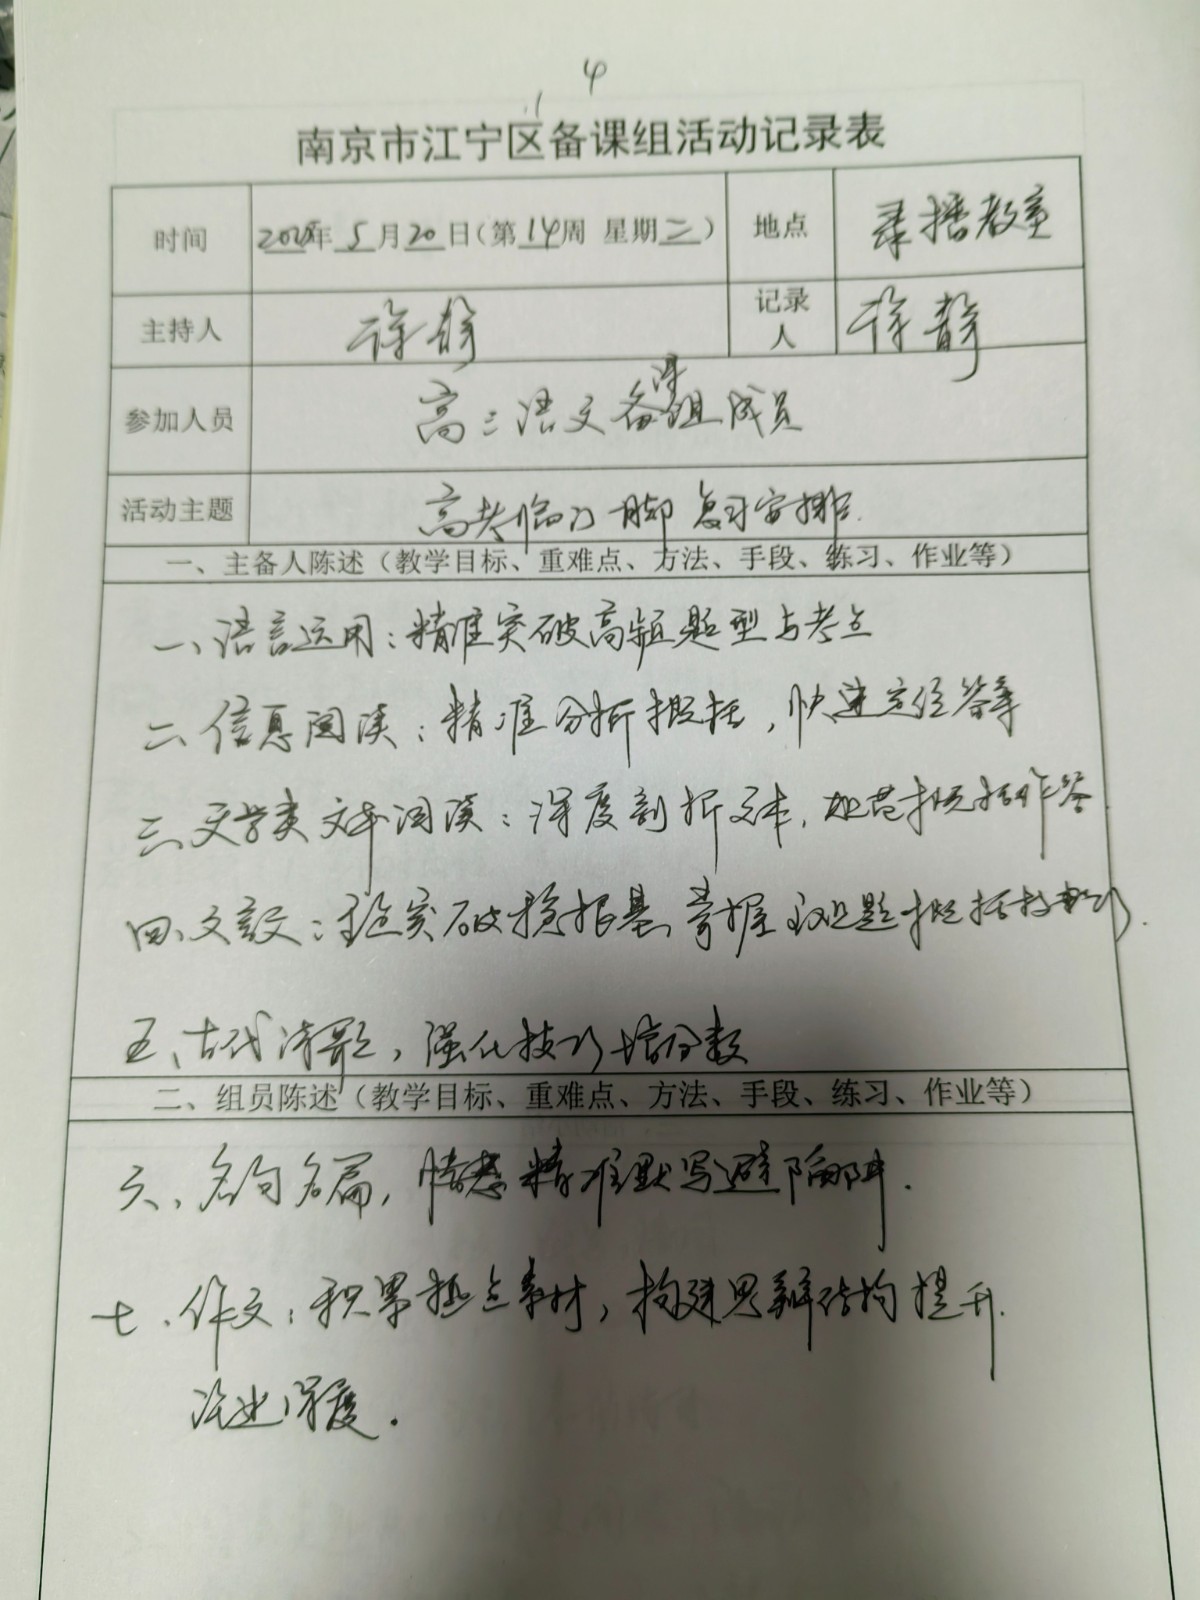 4
南京市江宁区备课组活动记录表
时间 2025年 5月20日(第14周 星期二) 地点 录播教室
主持人 徐静 记录人 徐静
参加人员 高三语文备课组成员
活动主题 高考临门一脚 复习安排
一、主备人陈述（教学目标、重难点、方法、手段、练习、作业等）
一、语言运用：精准突破高频题型与考点
二、信息阅读：精准分析概括，快速定位答案
三、文学类文本阅读：深度剖析文本，规范概括作答
四、文言文：突破稳根基，掌握主观题概括技巧.
五、古代诗歌，强化技巧增分数
二、组员陈述（教学目标、重难点、方法、手段、练习、作业等）
六、名句名篇，精准默写避陷阱.
七、作文：积累热点素材，构建思辨结构提升
论述深度.